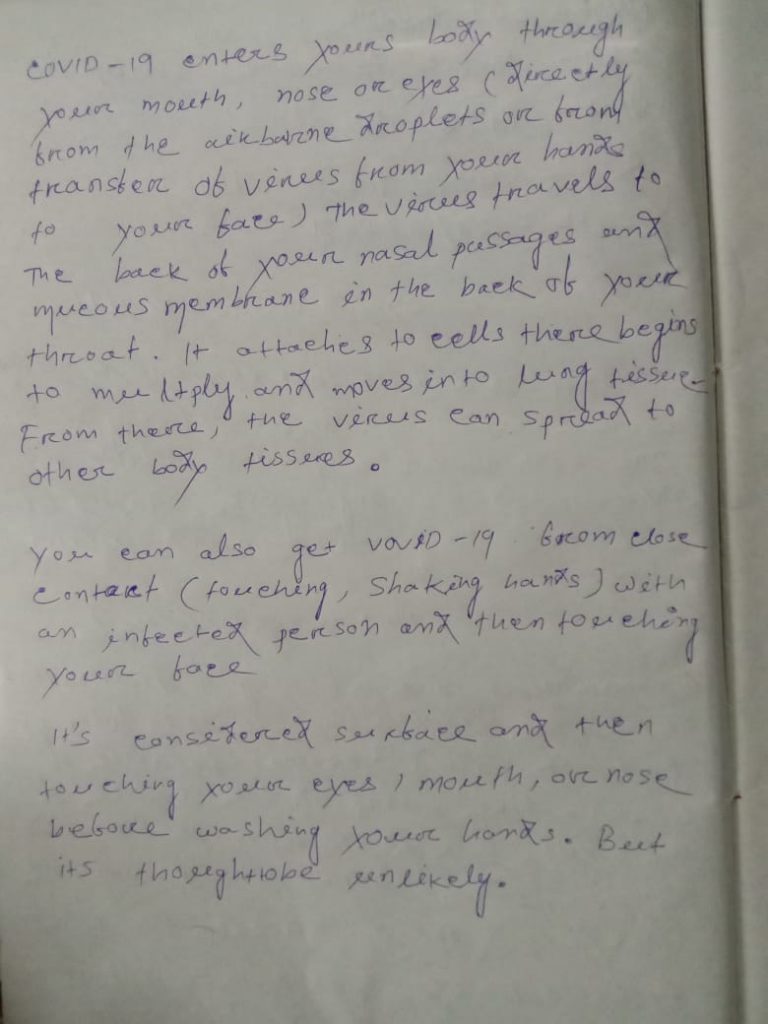 COVID-19 enters yours body through
your mouth, nose or eyes (directly
from the airbarne droplets or from
transfer of virus from your hands
to your face) The virus travels to
The back of your nasal passages and
mucous membrane in the back of your
throat. It attaches to cells there begins
to multply and moves into lung tissue.
From there, the virus can spread to
other body tissues.
You can also get vovID-19 from close
Contact (touching, Shaking hands) with
an infected person and then touching
your face
It's considered surface and then
touching your eyes, mouth, or nose
before washing your hands. But
its thoughtobe unlikely.